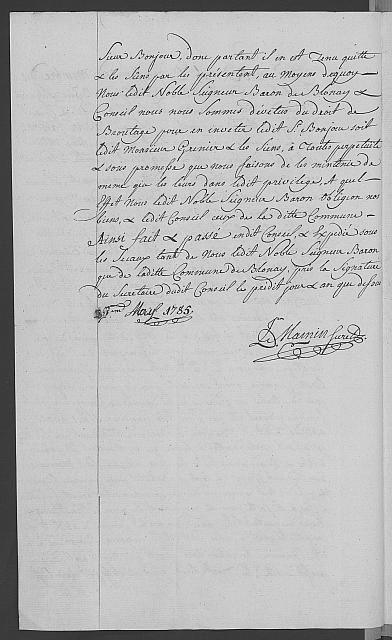 Sieur Bonjour, donc partant il en est Tenu quitte
& les Siens par les présentes, au Moyens dequoy
Nous ledit Noble Seigneur Baron de Blonay &
Conseil nous nous Sommes dévetus du droit de
Brouttage pour en investir ledit Sr. Bonjour soit
ledit Monsieur Grenier & les Siens, à Toute perpetuité
& sous promesse que nous faisons de les maintenir de
meme que les leurs dans ledit privilege, A quel
effet Nous ledit Noble Seigneur Baron obligeon nos
biens, & ledit Conseil ceux de la ditte Commune
Ainsi fait & passé endit Conseil, & Expedié sous
les Sceaux tant de Nous ledit Noble Seigneur Baron
que de laditte Commune de Blonay, près la Signature
du Secretaire dudit Conseil le prédit jour & an que dessus
May 1785.
Mamin